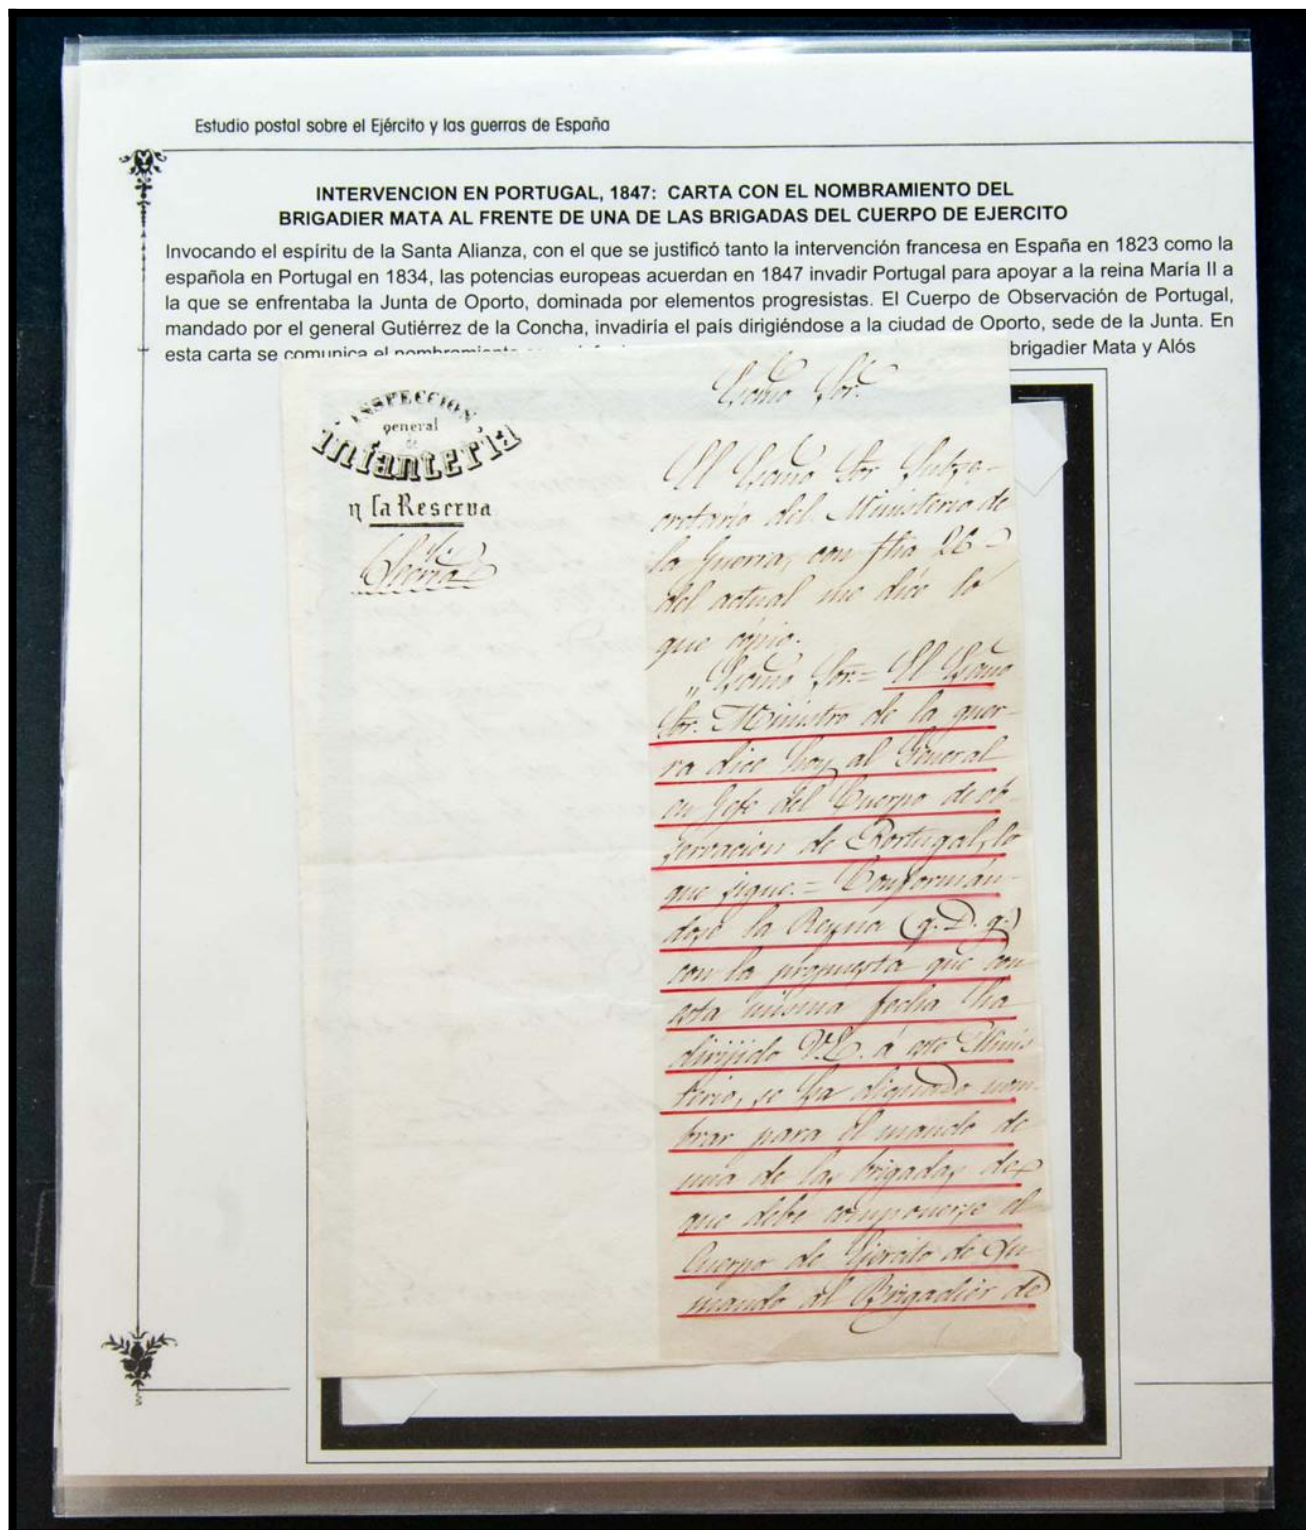 Estudio postal sobre el Ejército y las guerras de España
INTERVENCION EN PORTUGAL, 1847: CARTA CON EL NOMBRAMIENTO DEL
BRIGADIER MATA AL FRENTE DE UNA DE LAS BRIGADAS DEL CUERPO DE EJERCITO
Invocando el espíritu de la Santa Alianza, con el que se justificó tanto la intervención francesa en España en 1823 como la
española en Portugal en 1834, las potencias europeas acuerdan en 1847 invadir Portugal para apoyar a la reina María II a
la que se enfrentaba la Junta de Oporto, dominada por elementos progresistas. El Cuerpo de Observación de Portugal,
mandado por el general Gutiérrez de la Concha, invadiría el país dirigiéndose a la ciudad de Oporto, sede de la Junta. En
esta carta se comunica el nombramiento brigadier Mata y Alós
INSPECCION
general
de
infantería
y la Reserva
Excmo Sor.
El Excmo Sor Subse-
cretario del Ministerio de
la Guerra, con fha 26
del actual me dice lo
que copio.
"Excmo Sor.= El Excmo
Sor. Ministro de la guer-
ra dice hoy al General
en Gefe del Cuerpo de ob-
servacion de Portugal, lo
que sigue.= Conformán-
dose la Reyna (q. D. g.)
con la propuesta que con
esta misma fecha ha
dirijido V.E. á este Minis
terio, se ha dignado nom-
brar para el mando de
una de las brigadas de
que debe componerse el
Cuerpo de Ejercito de su
mando al Brigadier de